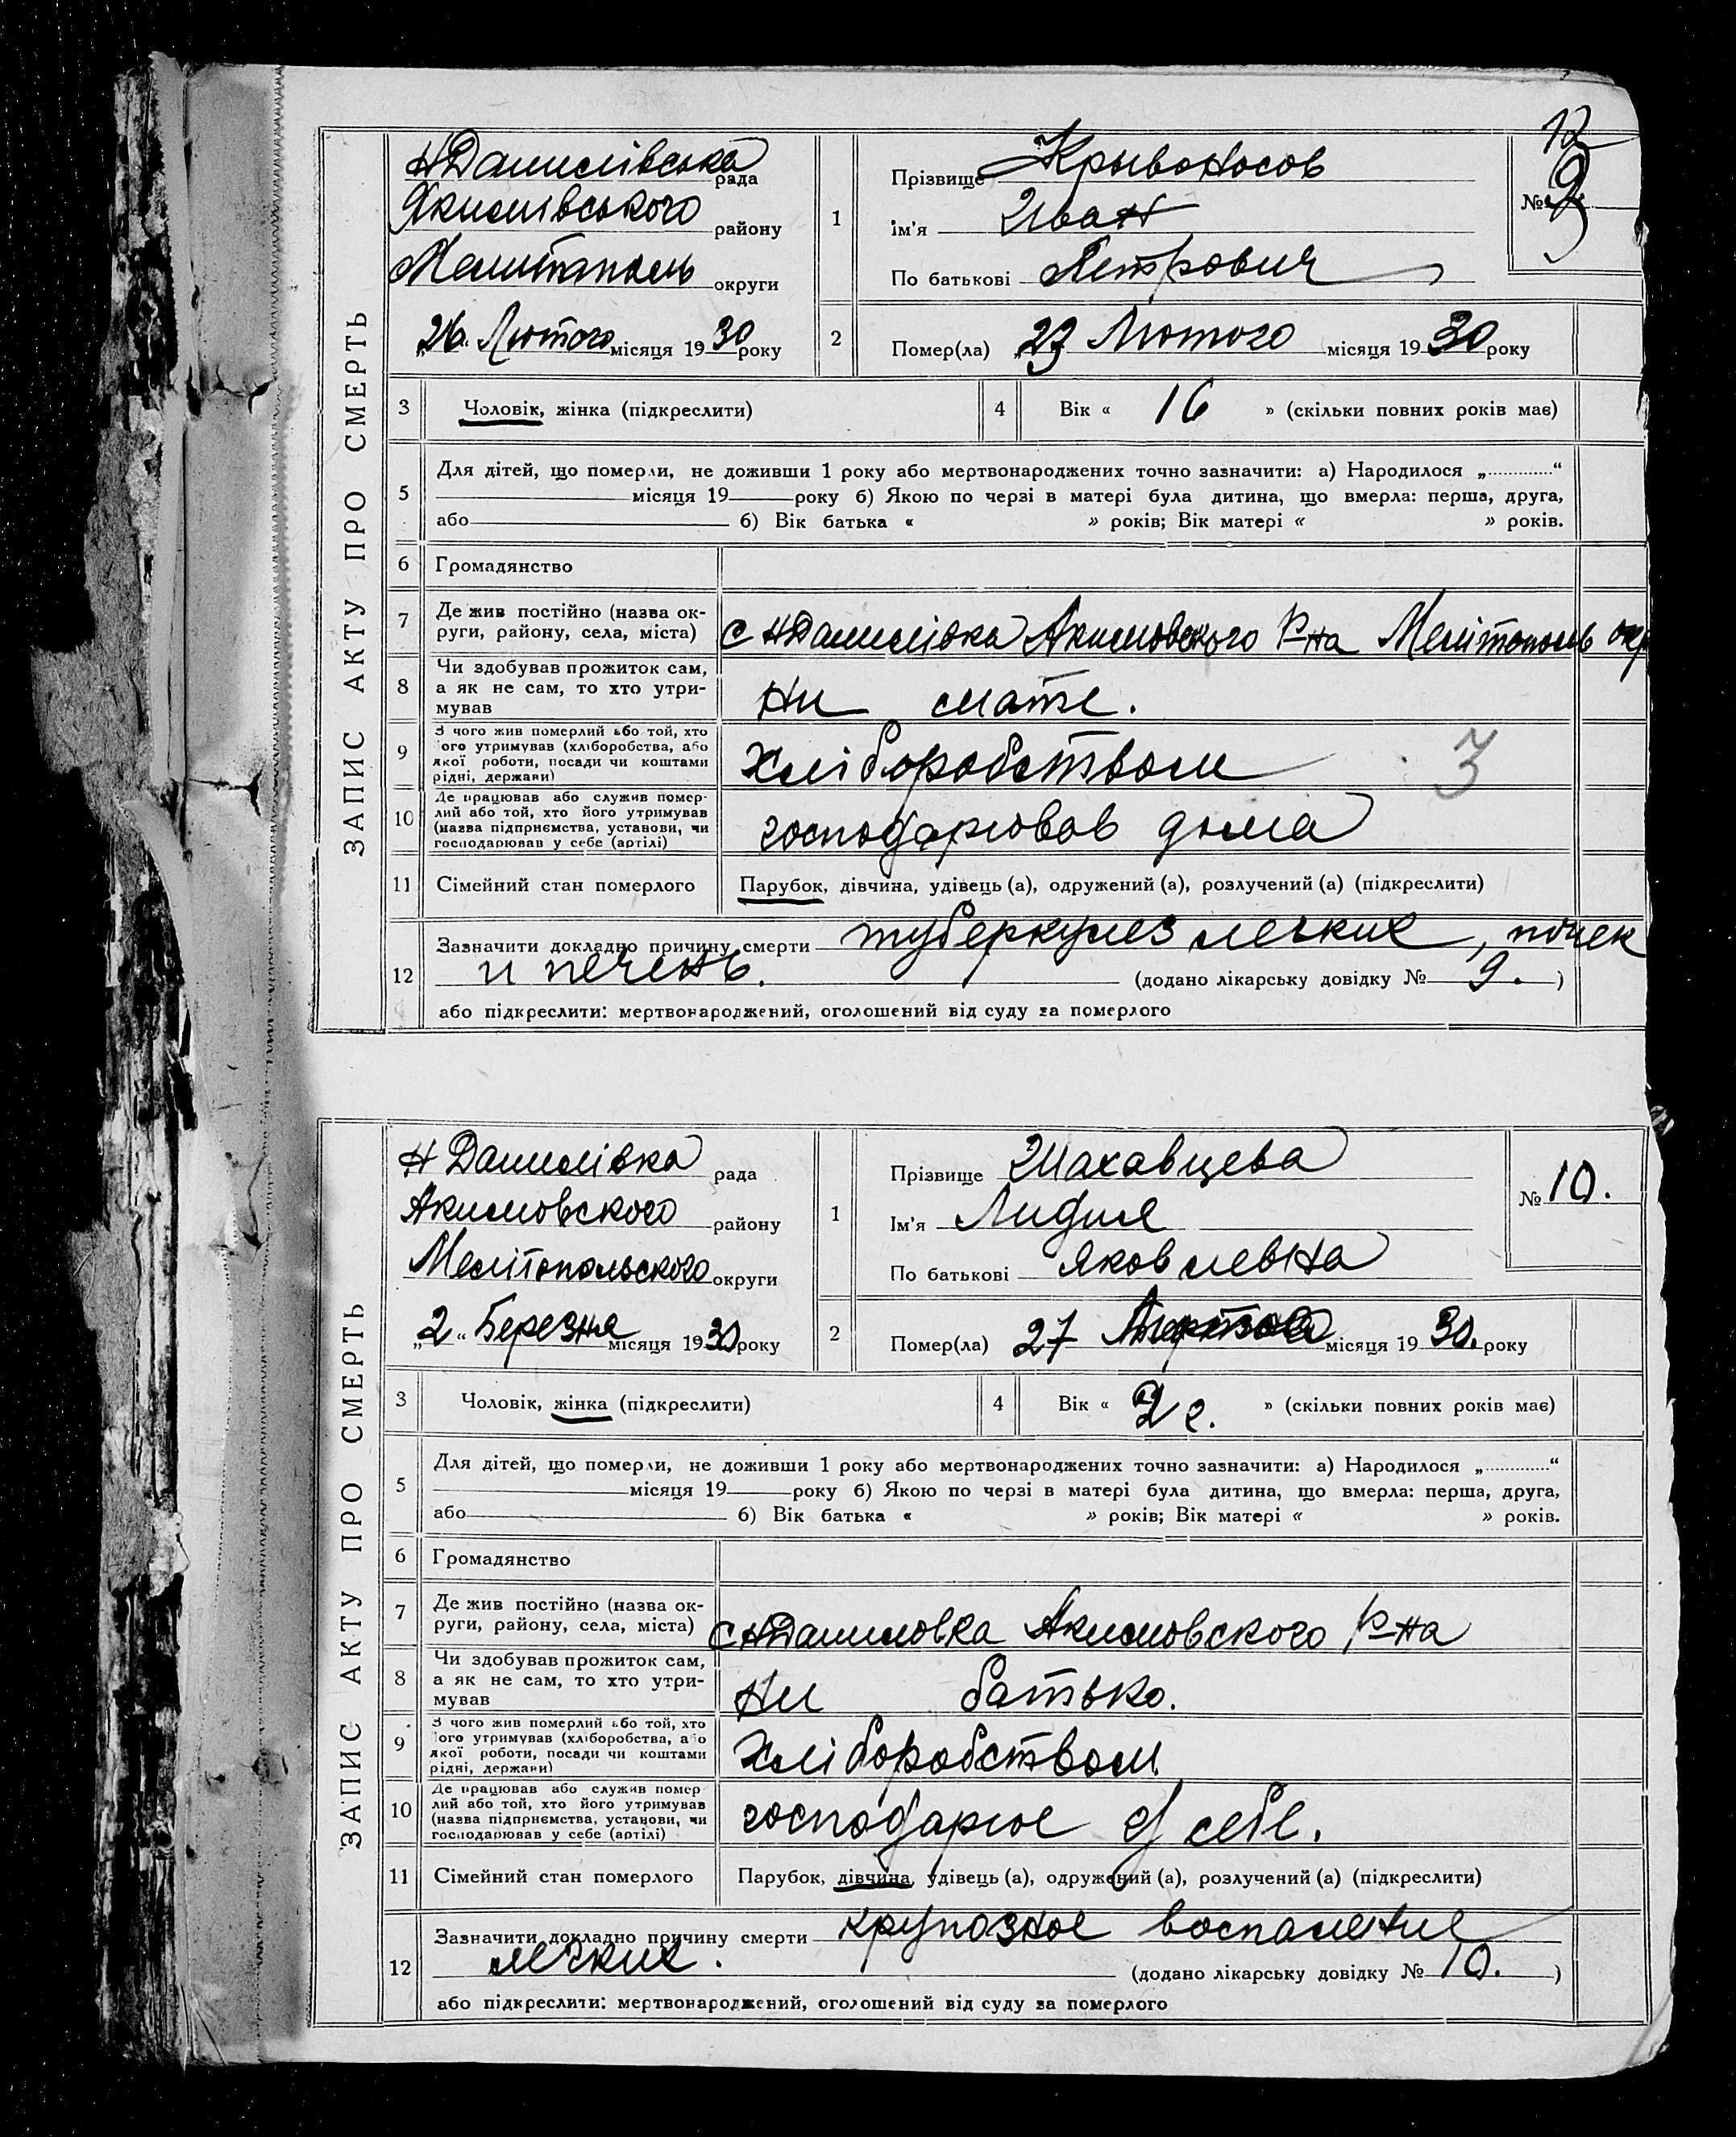 ЗАПИС АКТУ ПРО СМЕРТЬ
НДанилівська рада
Якимівського району
Мелитополь округи
„26. Лютого місяця 1930 року
1
Прізвище Крывоносов
ім'я Иван
По батькові Петрович
12
№ 9
2
Помер(ла) „23 Лютого місяця 1930 року
3 Чоловік, жінка (підкреслити)
4 Вік « 16 » (скільки повних років має)
5 Для дітей, що померли, не доживши 1 року або мертвонароджених точно зазначити: а) Народилося „............“
місяця 19 року б) Якою по черзі в матері була дитина, що вмерла: перша, друга,
або б) Вік батька « » років; Вік матері « » років.
6 Громадянство
7 Де жив постійно (назва ок-
руги, району, села, міста) с НДанилівка Акимовського Р-на Мелітополь окр
8 Чи здобував прожиток сам,
а як не сам, то хто утри-
мував
Ни мате.
9 З чого жив померлий або той, хто
його утримував (хліборобства, або
якої роботи, посади чи коштами
рідні, держави)
Хліборобством
3
10 Де працював або служив помер-
лий або той, хто його утримував
(назва підприємства, установи, чи
господарював у себе (артілі)
господарював дома
11 Сімейний стан померлого Парубок, дівчина, удівець (а), одружений (а), розлучений (а) (підкреслити)
12 Зазначити докладно причину смерти туберкулез легких, почек
и печень. (додано лікарську довідку № 9. )
або підкреслити: мертвонароджений, оголошений від суду за померлого
ЗАПИС АКТУ ПРО СМЕРТЬ
Н Данилівка рада
Акимовского району
Мелітопольского округи
„2“ Березня місяця 1930 року
1
Прізвище Шахавцева
Ім'я Лидия
По батькові Яковлевна
№ 10.
2
Помер(ла) 27 місяця 1930. року
3 Чоловік, жінка (підкреслити)
4 Вік « 2 г. » (скільки повних років має)
5 Для дітей, що померли, не доживши 1 року або мертвонароджених точно зазначити: а) Народилося „............“
місяця 19 року б) Якою по черзі в матері була дитина, що вмерла: перша, друга,
або б) Вік батька « » років; Вік матері « » років.
6 Громадянство
7 Де жив постійно (назва ок-
руги, району, села, міста) с НДаниловка Акимовского Р-на
8 Чи здобував прожиток сам,
а як не сам, то хто утри-
мував
Ни батько.
9 З чого жив померлий або той, хто
його утримував (хліборобства, або
якої роботи, посади чи коштами
рідні, держави)
Хліборобством
10 Де працював або служив помер
лий або той, хто його утримував
(назва підприємства, установи, чи
господарював у себе (артілі)
господарює у себе.
11 Сімейний стан померлого Парубок, дівчина, удівець (а), одружений (а), розлучений (а) (підкреслити)
12 Зазначити докладно причину смерти крупозное воспаление
легких. (додано лікарську довідку № 10. )
або підкреслити: мертвонароджений, оголошений від суду за померлого